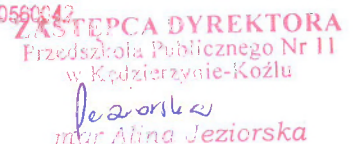 0560042
ZASTĘPCA DYREKTORA
Przedszkola Publicznego Nr 11
w Kędzierzynie-Koźlu
Jeziorska
mgr Alina Jeziorska